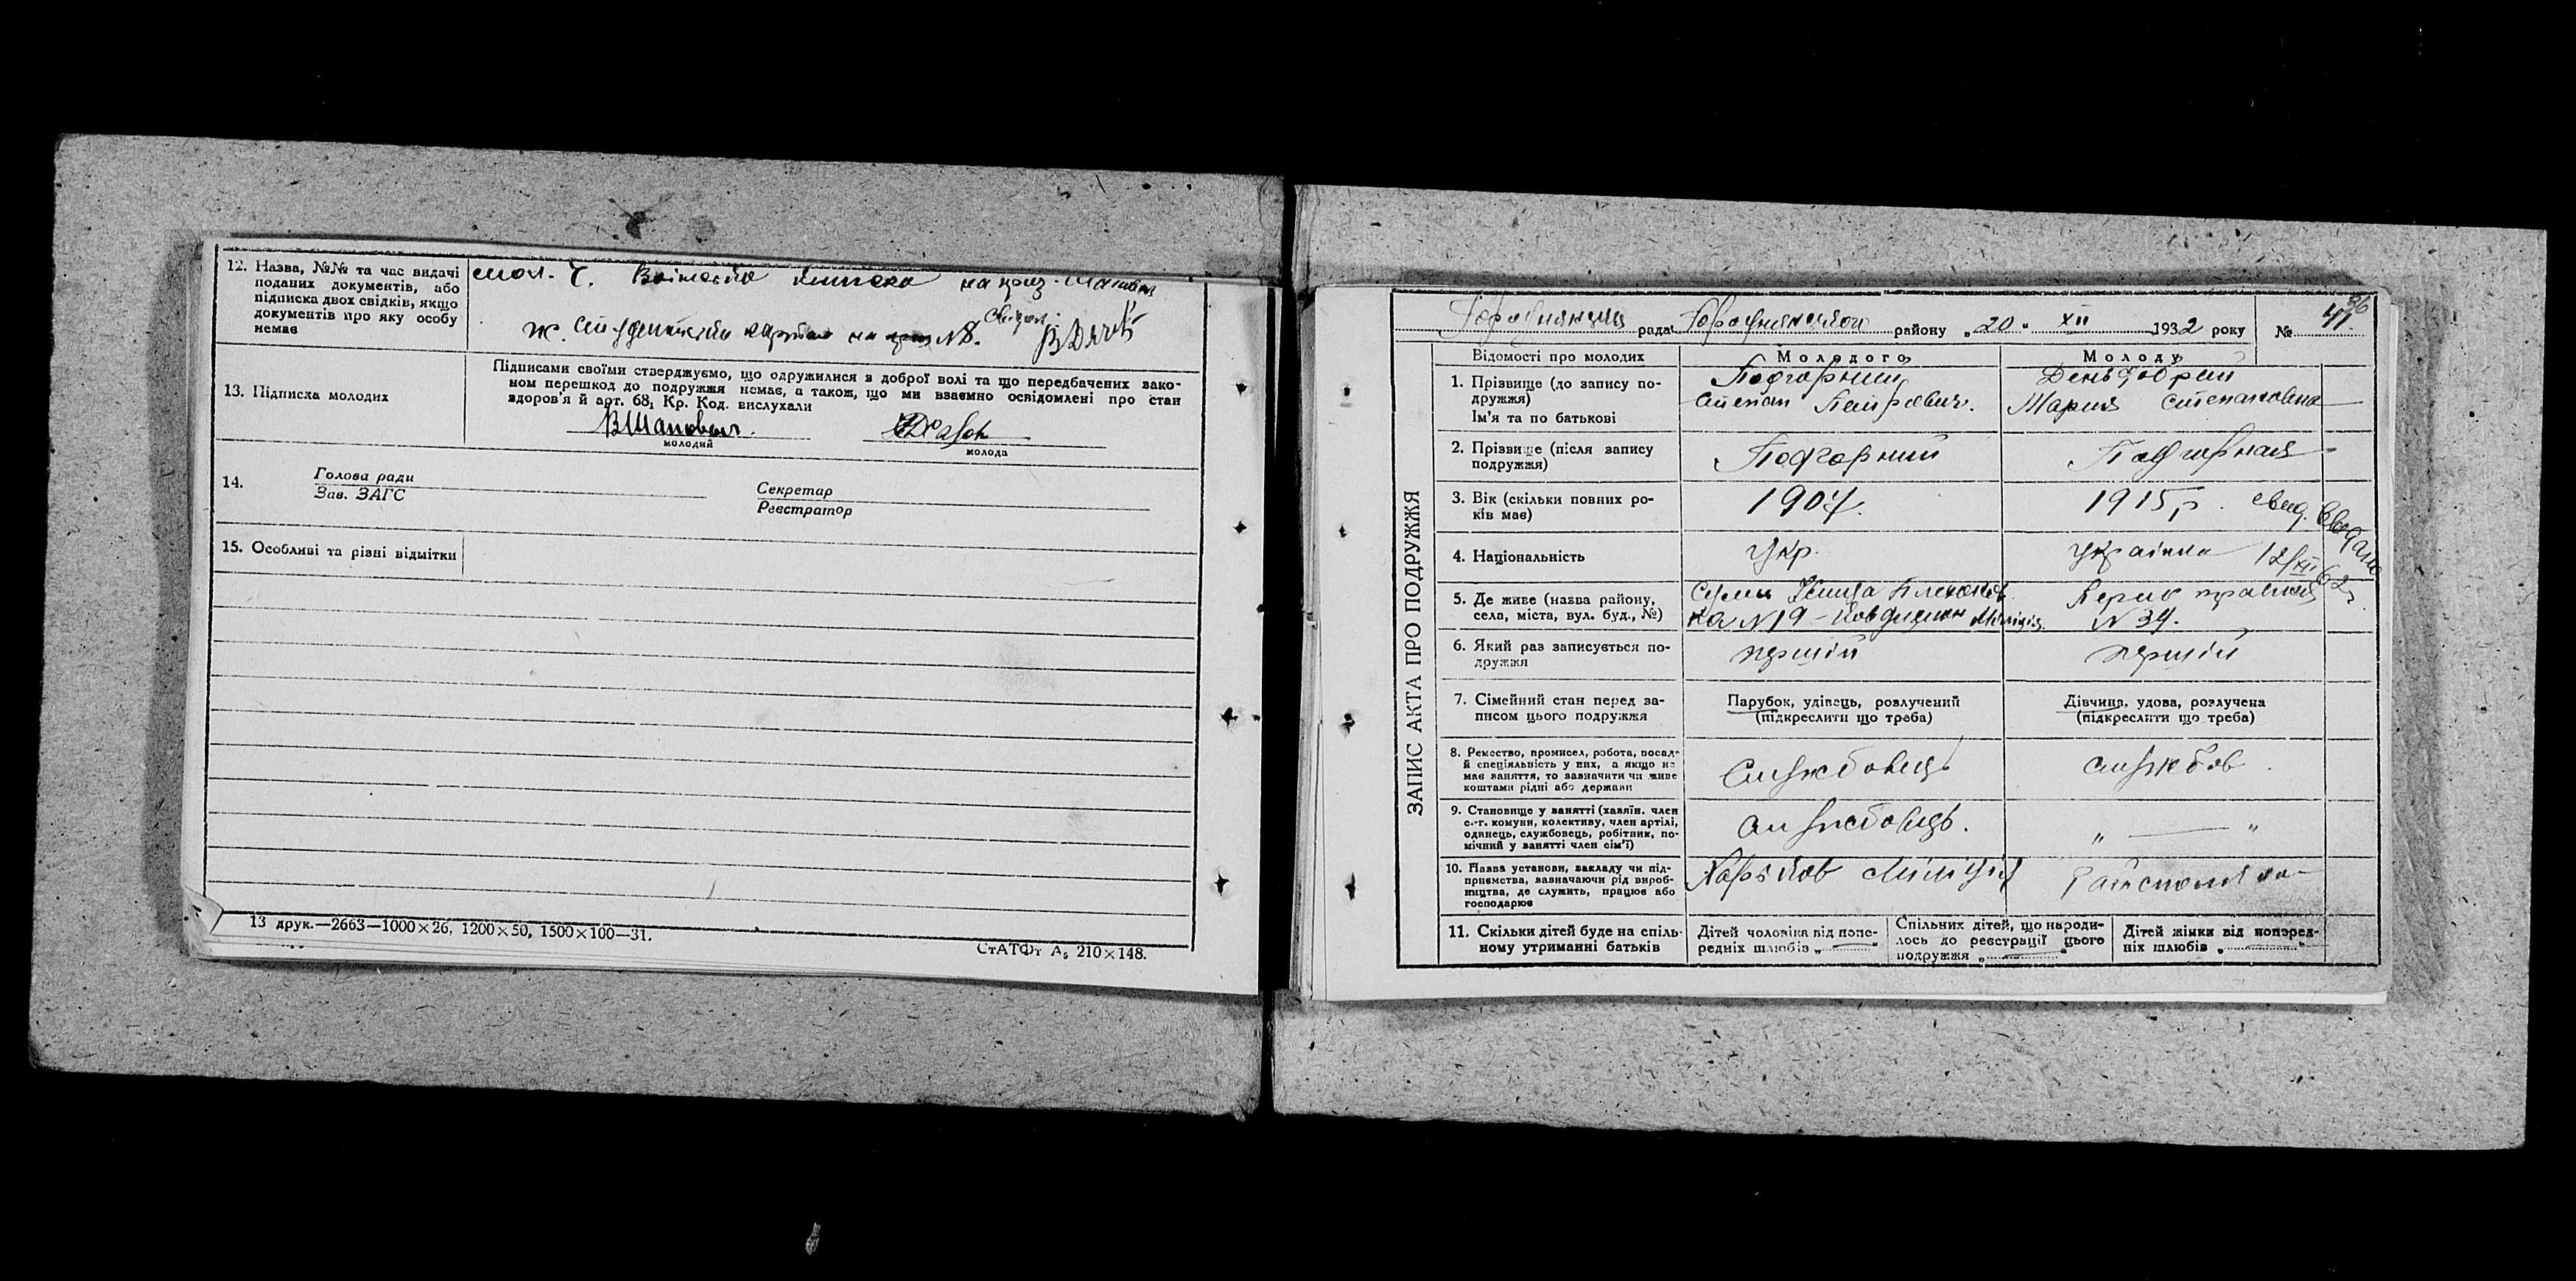 12. Назва, №№ та час видачі
поданих документів, або
підписка двох свідків, якщо
документів про яку особу
немає
мол. Ч.
Ж.
13. Підписка молодих
Підписами своїми стверджуємо, що одружилися з доброї волі та що передбачених зако-
ном перешкод до подружжя немає, а також, що ми взаємно освідомлені про стан
здоров'я й арт. 68, Кр. Код. вислухали
молодий
молода
14.
Голова ради
Зав. ЗАГС
Секретар
Реєстратор
15. Особливі та різні відмітки
13 друк.—2663—1000×26, 1200×50, 1500×100—31.
СтАТФт А₅ 210×148.
ЗАПИС АКТА ПРО ПОДРУЖЖЯ
рада району „20“ XII 1932 року № 41
Відомості про молодих
Молодого
Молоду
1. Прізвище (до запису по-
дружжя)
Ім'я та по батькові
Подгорний
Степан Петрович.
Деньдобрий
Мария Степановна
2. Прізвище (після запису
подружжя)
Подгорний
Подгорная
3. Вік (скільки повних ро-
ків має)
1907.
1915 р.
4. Національність
Укр.
українка
12/XII 62 г.
5. Де живе (назва району,
села, міста, вул. буд., №)
Суми
№ 19
№ 34.
6. Який раз записується по-
дружжя
перший
перший
7. Сімейний стан перед за-
писом цього подружжя
Парубок, удівець, розлучений
(підкреслити що треба)
Дівчина, удова, розлучена
(підкреслити що треба)
8. Ремество, промисел, робота, посад-
й спеціяльність у них, а якщо не
має заняття, то зазначити чи живе
коштами рідні або держави
Службовець
службов.
9. Становище у занятті (хазяїн. член
с.-г. комуни, колективу, член артілі,
одинець, службовець, робітник, по-
мічний у занятті член сім'ї)
службовець.
„ — “
10. Назва установи, закладу чи під-
приємства, зазначаючи рід вироб-
ництва, де служить, працює або
господарює
Харьков міліция
11. Скільки дітей буде на спіль-
ному утриманні батьків
Дітей чоловіка від попе-
редніх шлюбів „ — “
Спільних дітей, що народи-
лось до реєстрації цього
подружжя „ — “
Дітей жінки від поперед-
ніх шлюбів „ — “